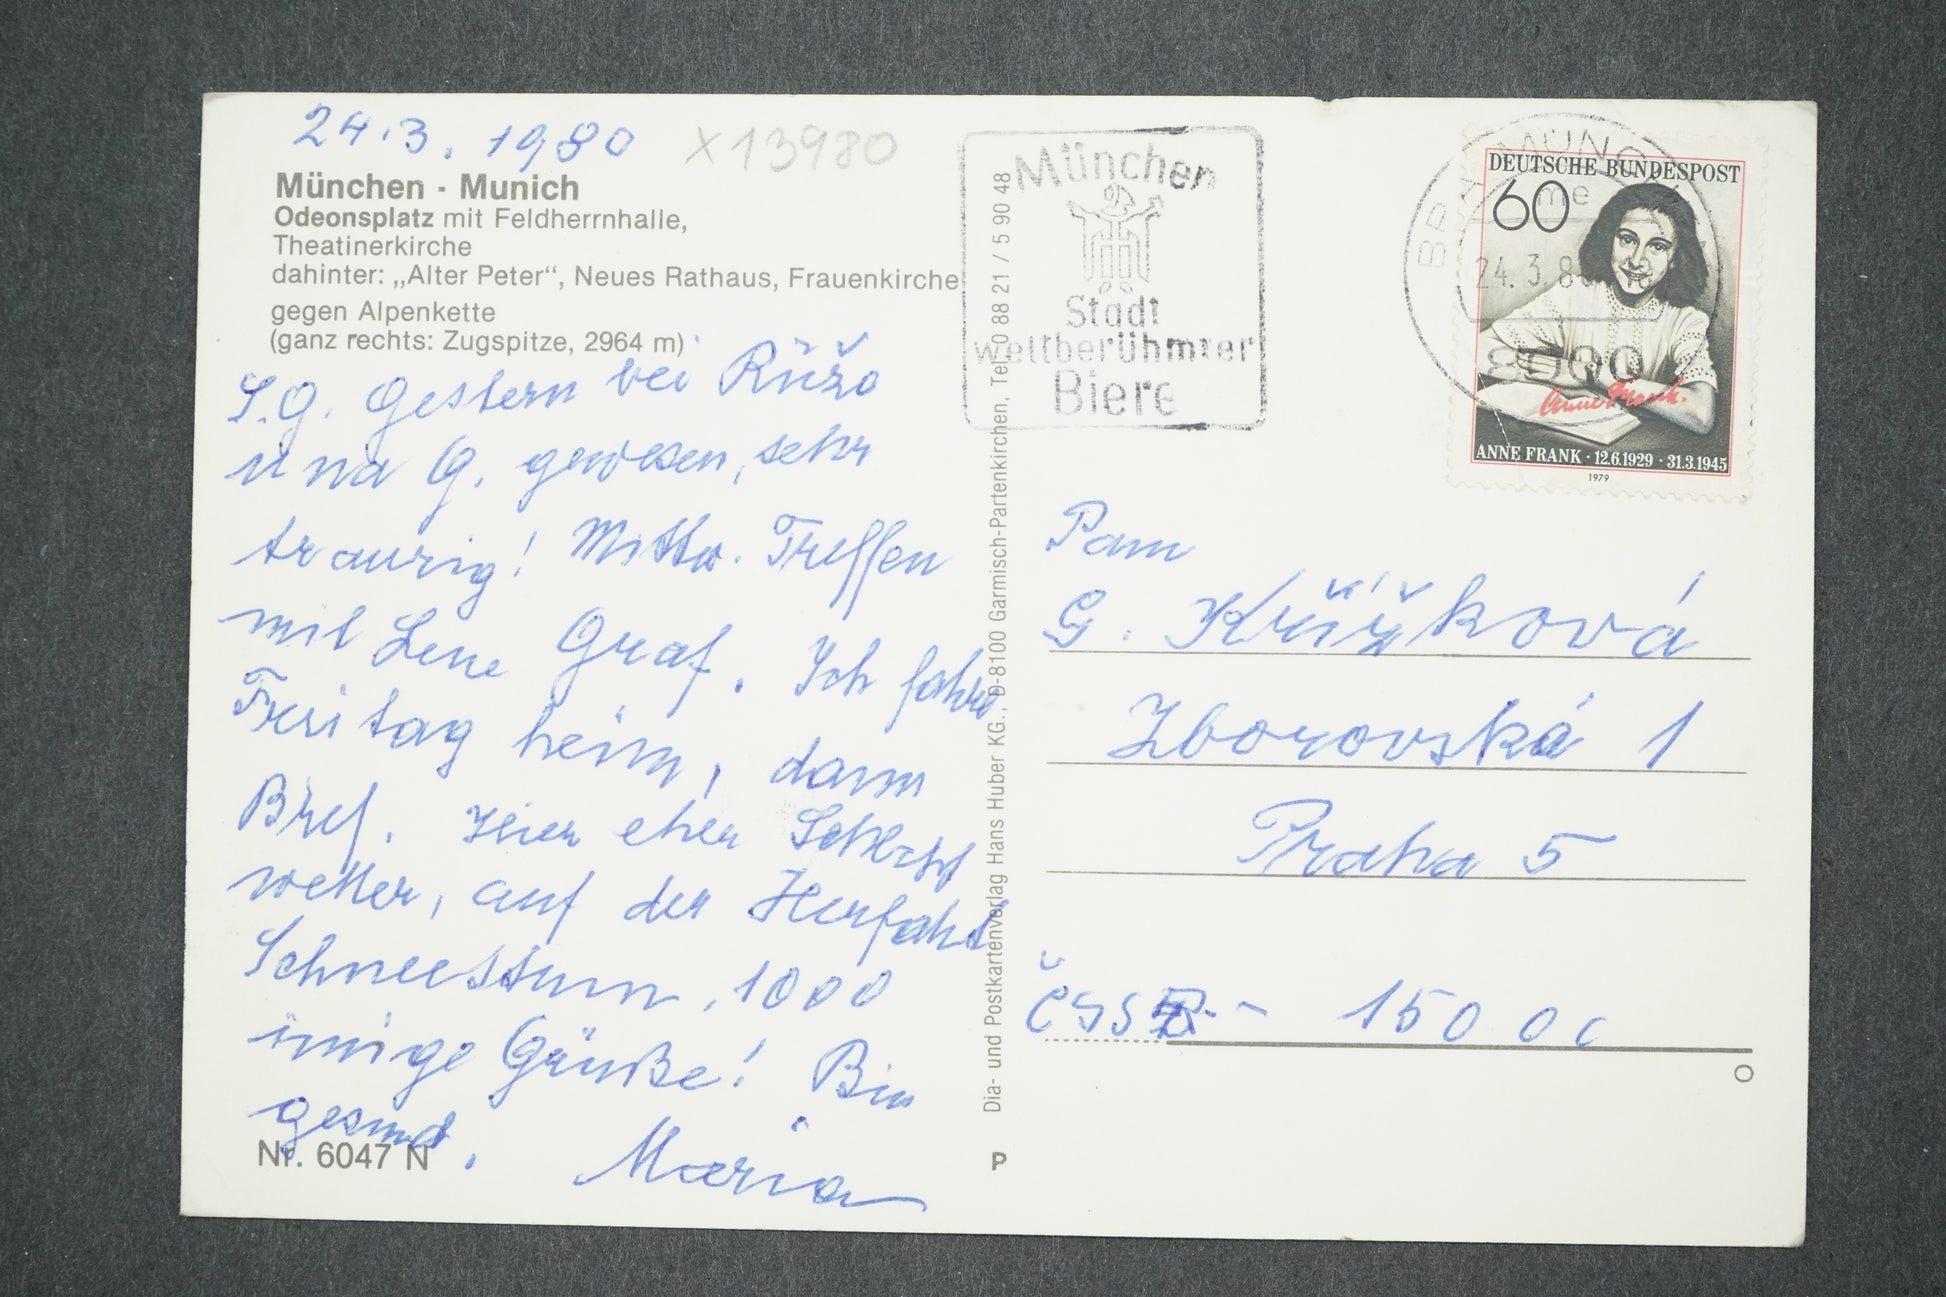 24.3.1980
X13980
München - Munich
Odeonsplatz mit Feldherrnhalle,
Theatinerkirche
dahinter: „Alter Peter“, Neues Rathaus, Frauenkirche
gegen Alpenkette
(ganz rechts: Zugspitze, 2964 m)
L.G. Gestern bei Růžo
und G. gewesen, sehr
traurig! Mittw. Treffen
mit Lene Graf. Ich fahre
Freitag heim, dann
Brief. Hier eher Schlecht
wetter, auf der Herfahrt
Schneesturm, 1000
innige Grüße! Bin
gesund.
Maria
Nr. 6047 N
Dia- und Postkartenverlag Hans Huber KG., D-8100 Garmisch-Partenkirchen, Tel. 0 88 21 / 5 90 48
P
München
Stadt
weltberühmter
Biere
MÜNCHEN
me
24.3.80
8000
DEUTSCHE BUNDESPOST
60
Anne Frank.
ANNE FRANK · 12.6.1929 · 31.3.1945
1979
Pani
G. Křížková
Zborovská 1
Praha 5
ČSSR - 150 00